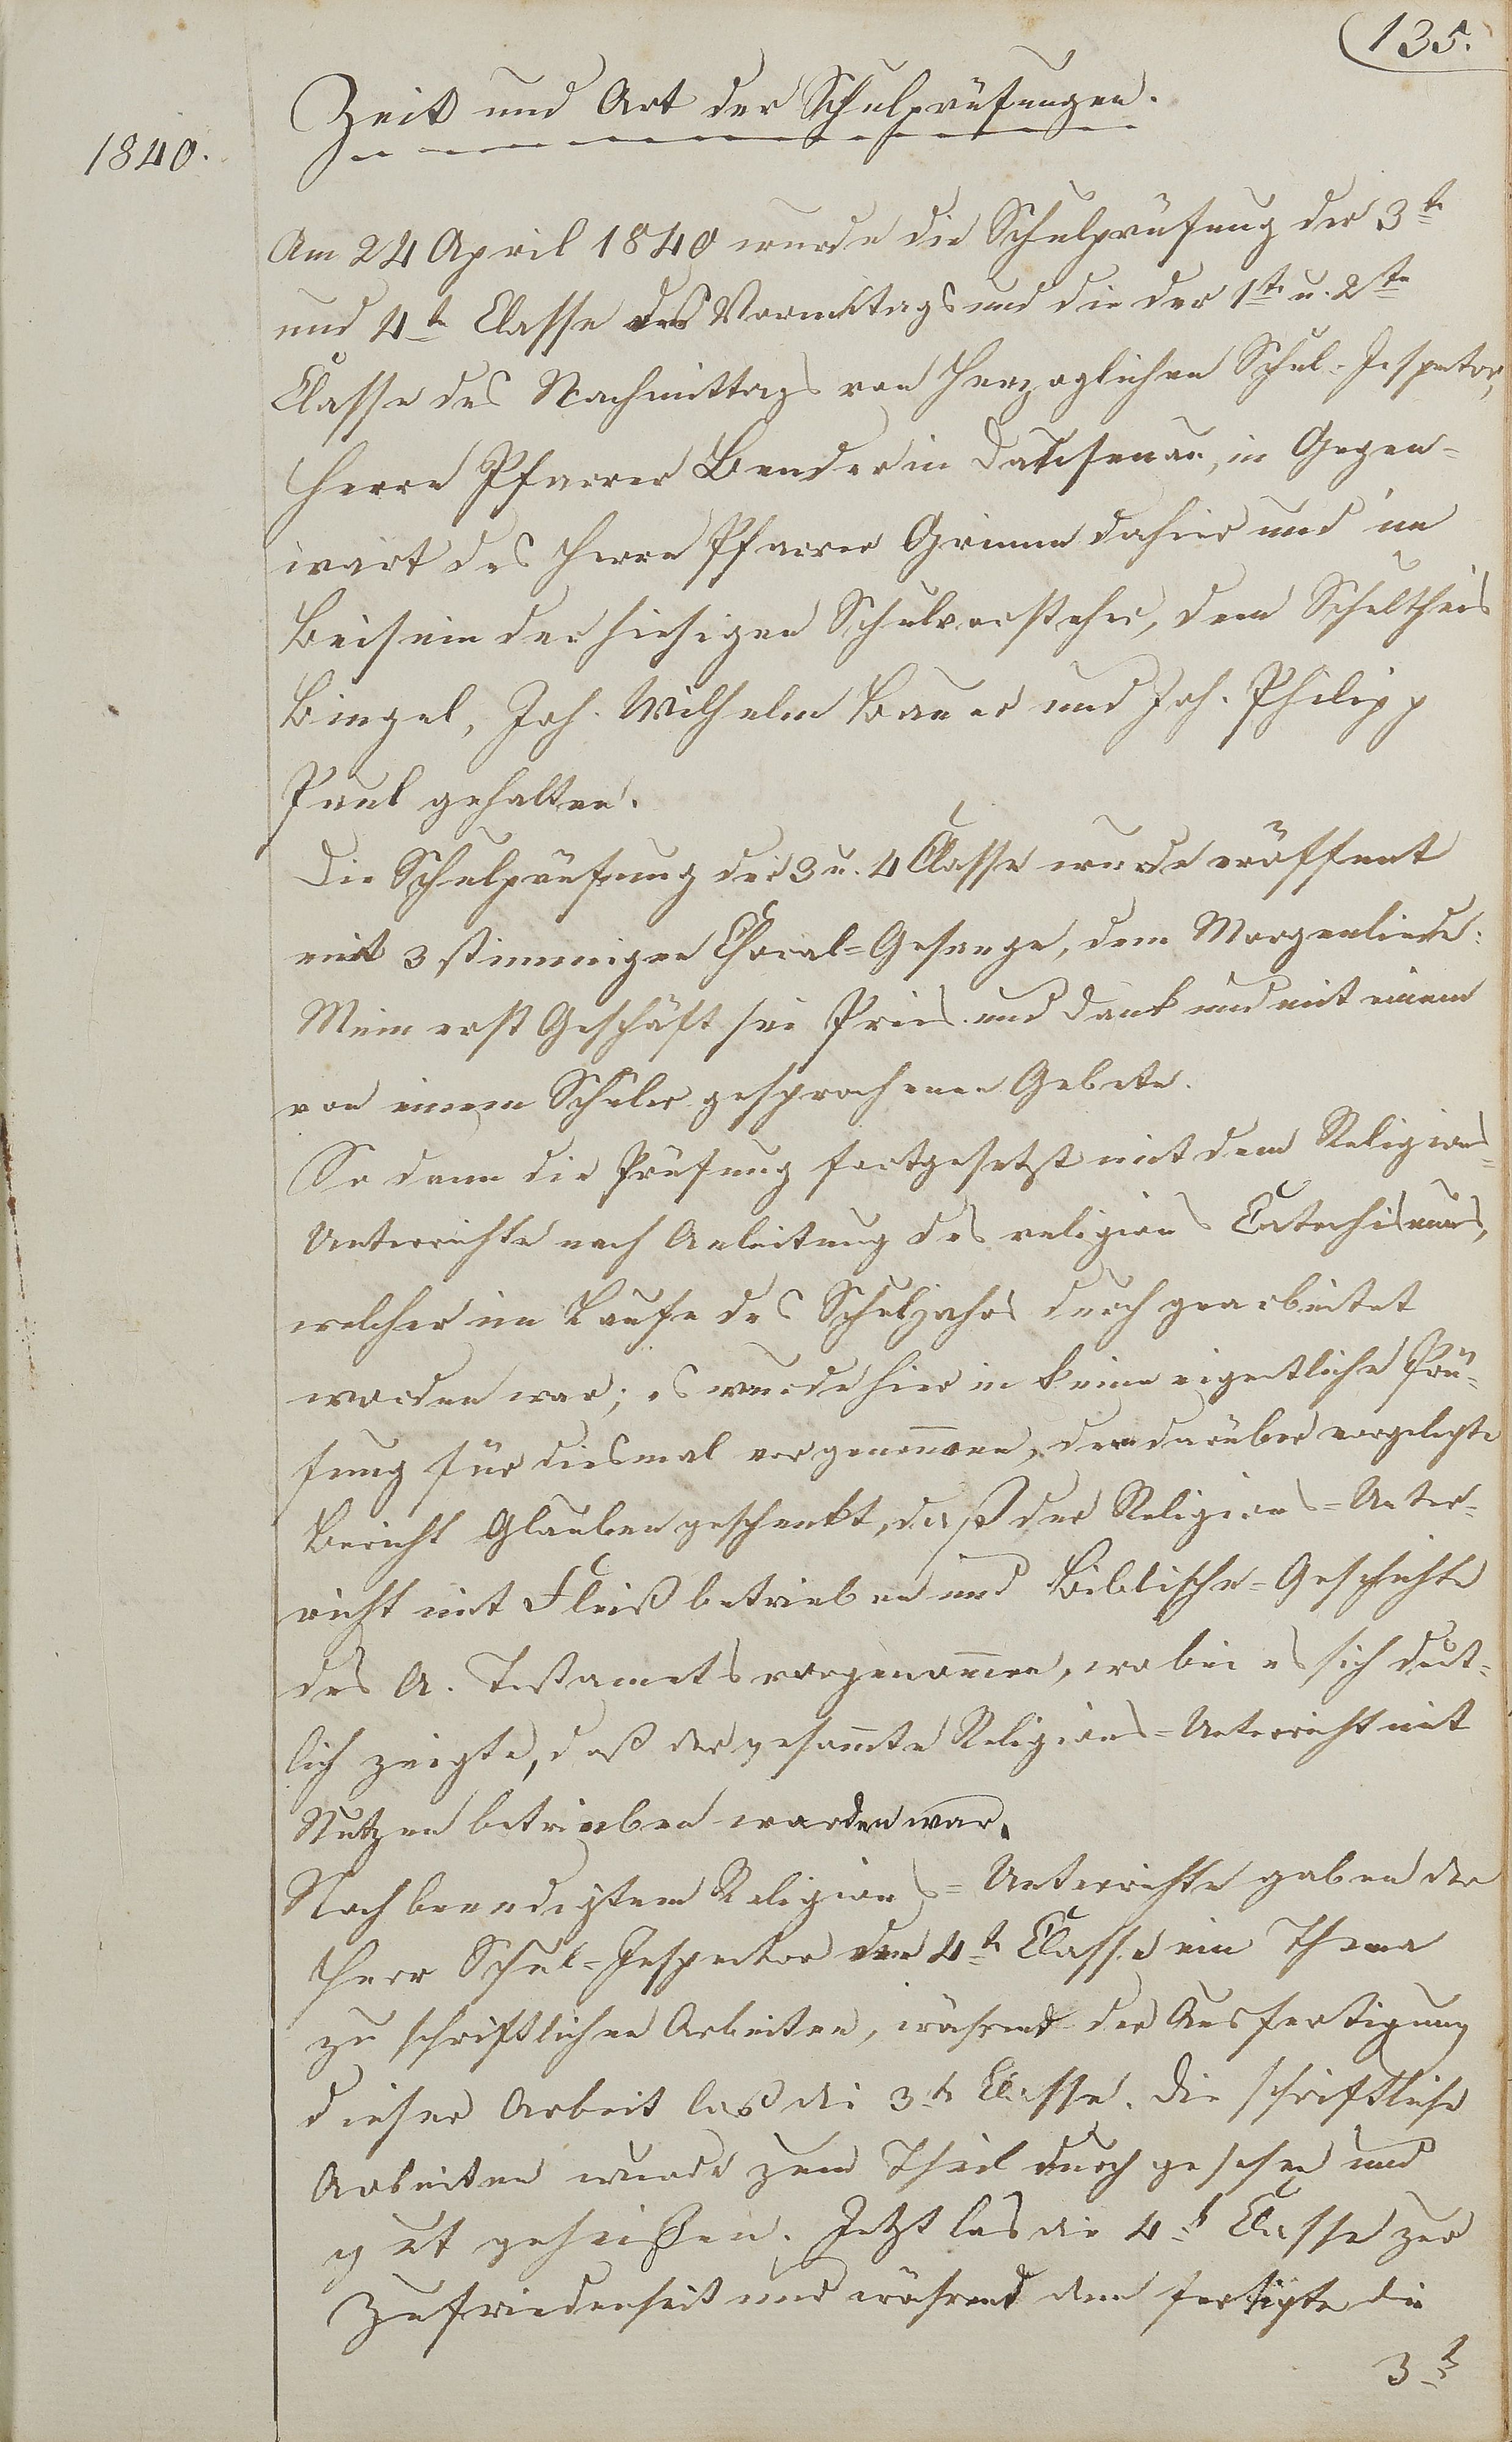 135.
Zeit und Art der Schulprüfungen.
1840.
Am 24 April 1840 wurde die Schulprüfung der 3te
und 4te Classe des Vormittags und die der 1te u. 2te
Classe des Nachmittags von Herzoglichen Schul-Jnspector,
Herrn Pfarrer Bender in Dausenau, in Gegen-
wart des Herrn Pfarrer Grimm dahier und im
Beisein der hiesigen Schulvorsteher, dem Schultheis
Bingel, Joh. Wilhelm Bauer und Joh. Philipp
Paul gehalten.
Die Schulprüfung der 3 u. 4 Classe wurde eröffnet
mit 3 stimmigen Choral-Gesange, dem Morgenliede:
Mein erst Geschäft sei Preis und Dank und mit einem
von einem Schüler gesprochenen Gebete.
So dann die Prüfung fortgesetzt mit dem Religions-
Unterrichte nach Anleitung des religions Catechismus,
welcher im Laufe des Schuljahrs durch gearbeitet
worden war; es wurde hier in keine eigentliche Prü-
fung für diesmal vorgenommen, dem darüber vorgelegte
Bericht Glauben geschenkt, daß der Religions-Unter-
richt mit Fleiß betrieben und Biblische-Geschichte
des A. Testaments vorgenommen, wobei es sich deut-
lich zeigte, daß der gesammte Religions-Unterricht mit
Nutzen betrieben worden war.
Nach beendigtem Religions-Unterrichte gaben der
Herr Schul-Jnspector der 4te Classe ein Thema
zu schriftlichen Arbeiten, während der Ausfertigung
dieser Arbeit las die 3te Classe. Die schriftliche
Arbeiten wurde zum Theil durch gesehen und
gut geheißen. Jetzt las die 4te Classe zur
Zufriedenheit und während dem fertigte die
3te